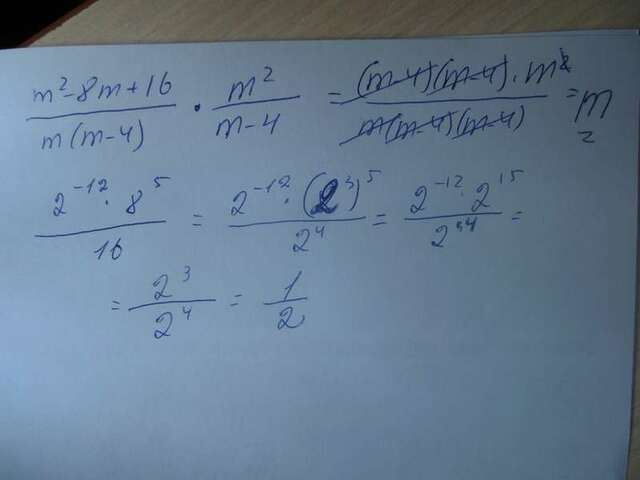 (m²-8m+16)/(m(m-4)) · m²/(m-4) = ((m-4)(m-4)·m²)/(m(m-4)(m-4)) = m
(2⁻¹²·8⁵)/16 = (2⁻¹²·(2³)⁵)/2⁴ = (2⁻¹²·2¹⁵)/2⁴ =
= 2³/2⁴ = 1/2